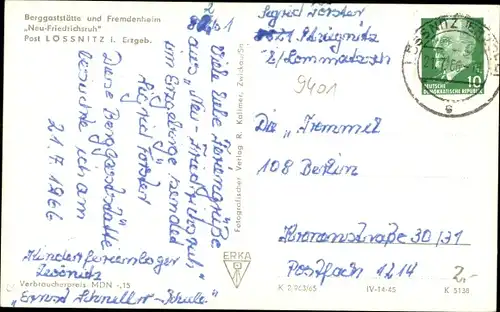 Berggaststätte und Fremdenheim
„Neu-Friedrichsruh"
Post LOSSNITZ i. Erzgeb.
Viele liebe Feriengrüße
aus „Neu-Friedrichsruh"
im Erzgebirge sendet
Sigrid Förster
Diese Berggaststätte
besuchte ich am
21. 7. 1966
Kinderferienlager
Lössnitz
Verbraucherpreis: MDN -,15
„Ernst Schneller-Schule"
Fotografischer Verlag R. Kallmer, Zwickau-Sa.
ERKA
Sigrid Förster
b/Lommatzsch
9401
Die „Trommel"
108 Berlin
Kronenstraße 30/31
Postfach 1214
2.-
K 2963/65
IV-14-45
K 5138
LÖSSNITZ
DEUTSCHE
DEMOKRATISCHE REPUBLIK
10